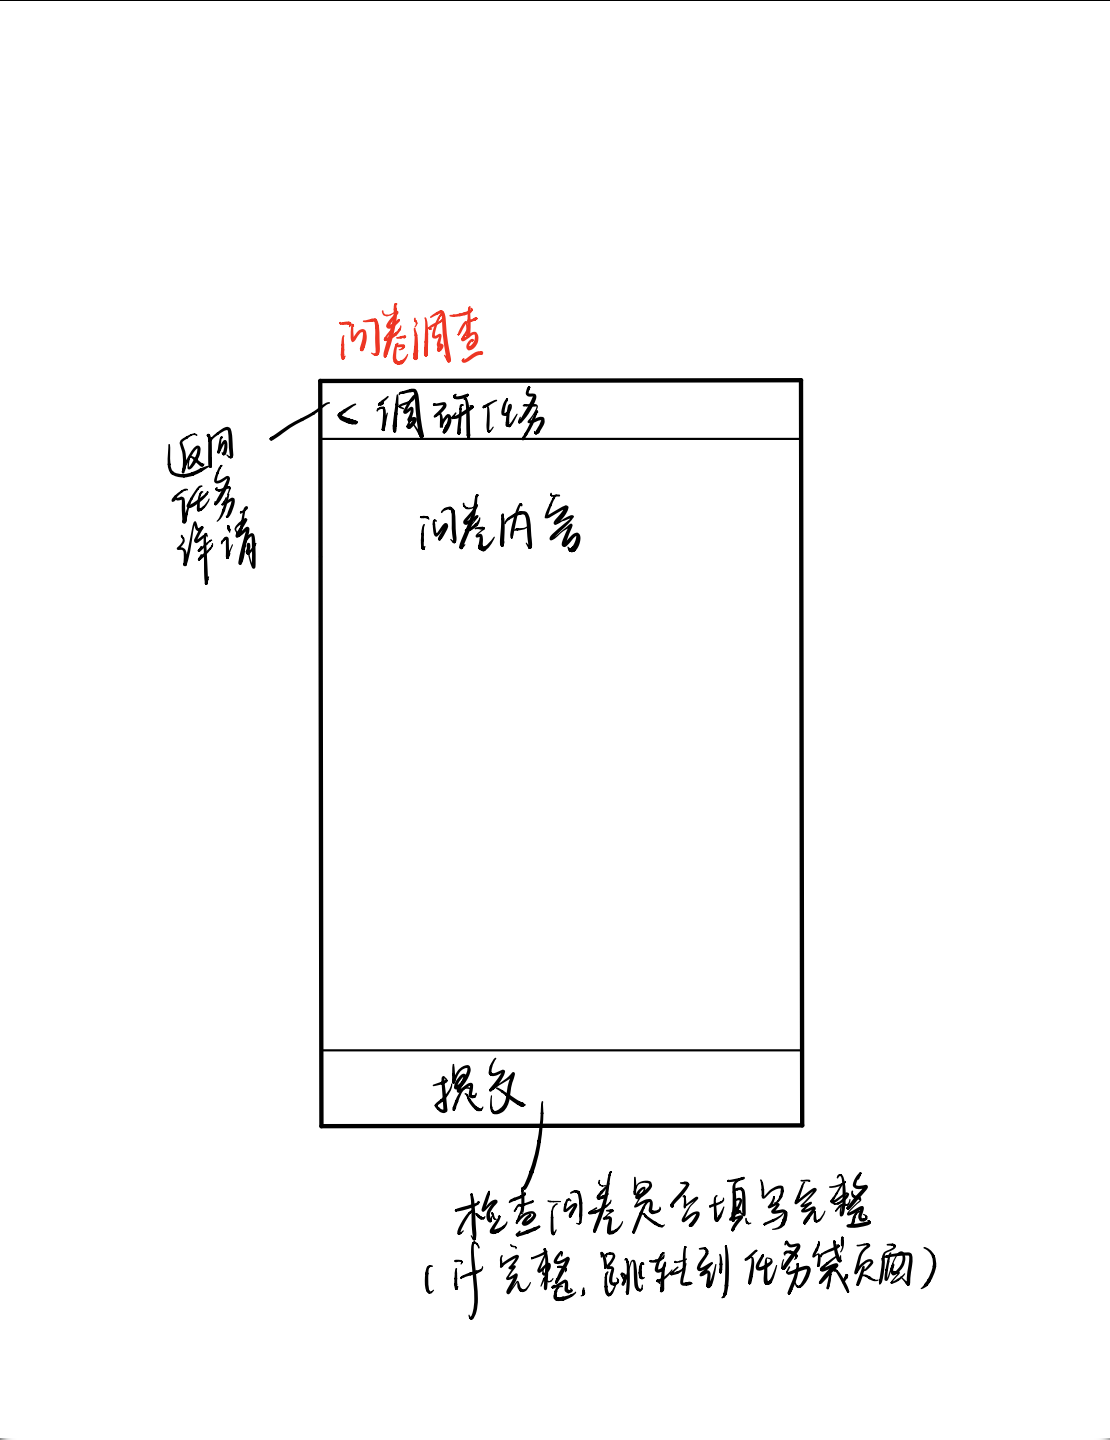 问卷调查
< 调研任务
返回
任务
详请
问卷内容
提交
检查问卷是否填写完整
(if 完整, 跳转到任务袋页面)